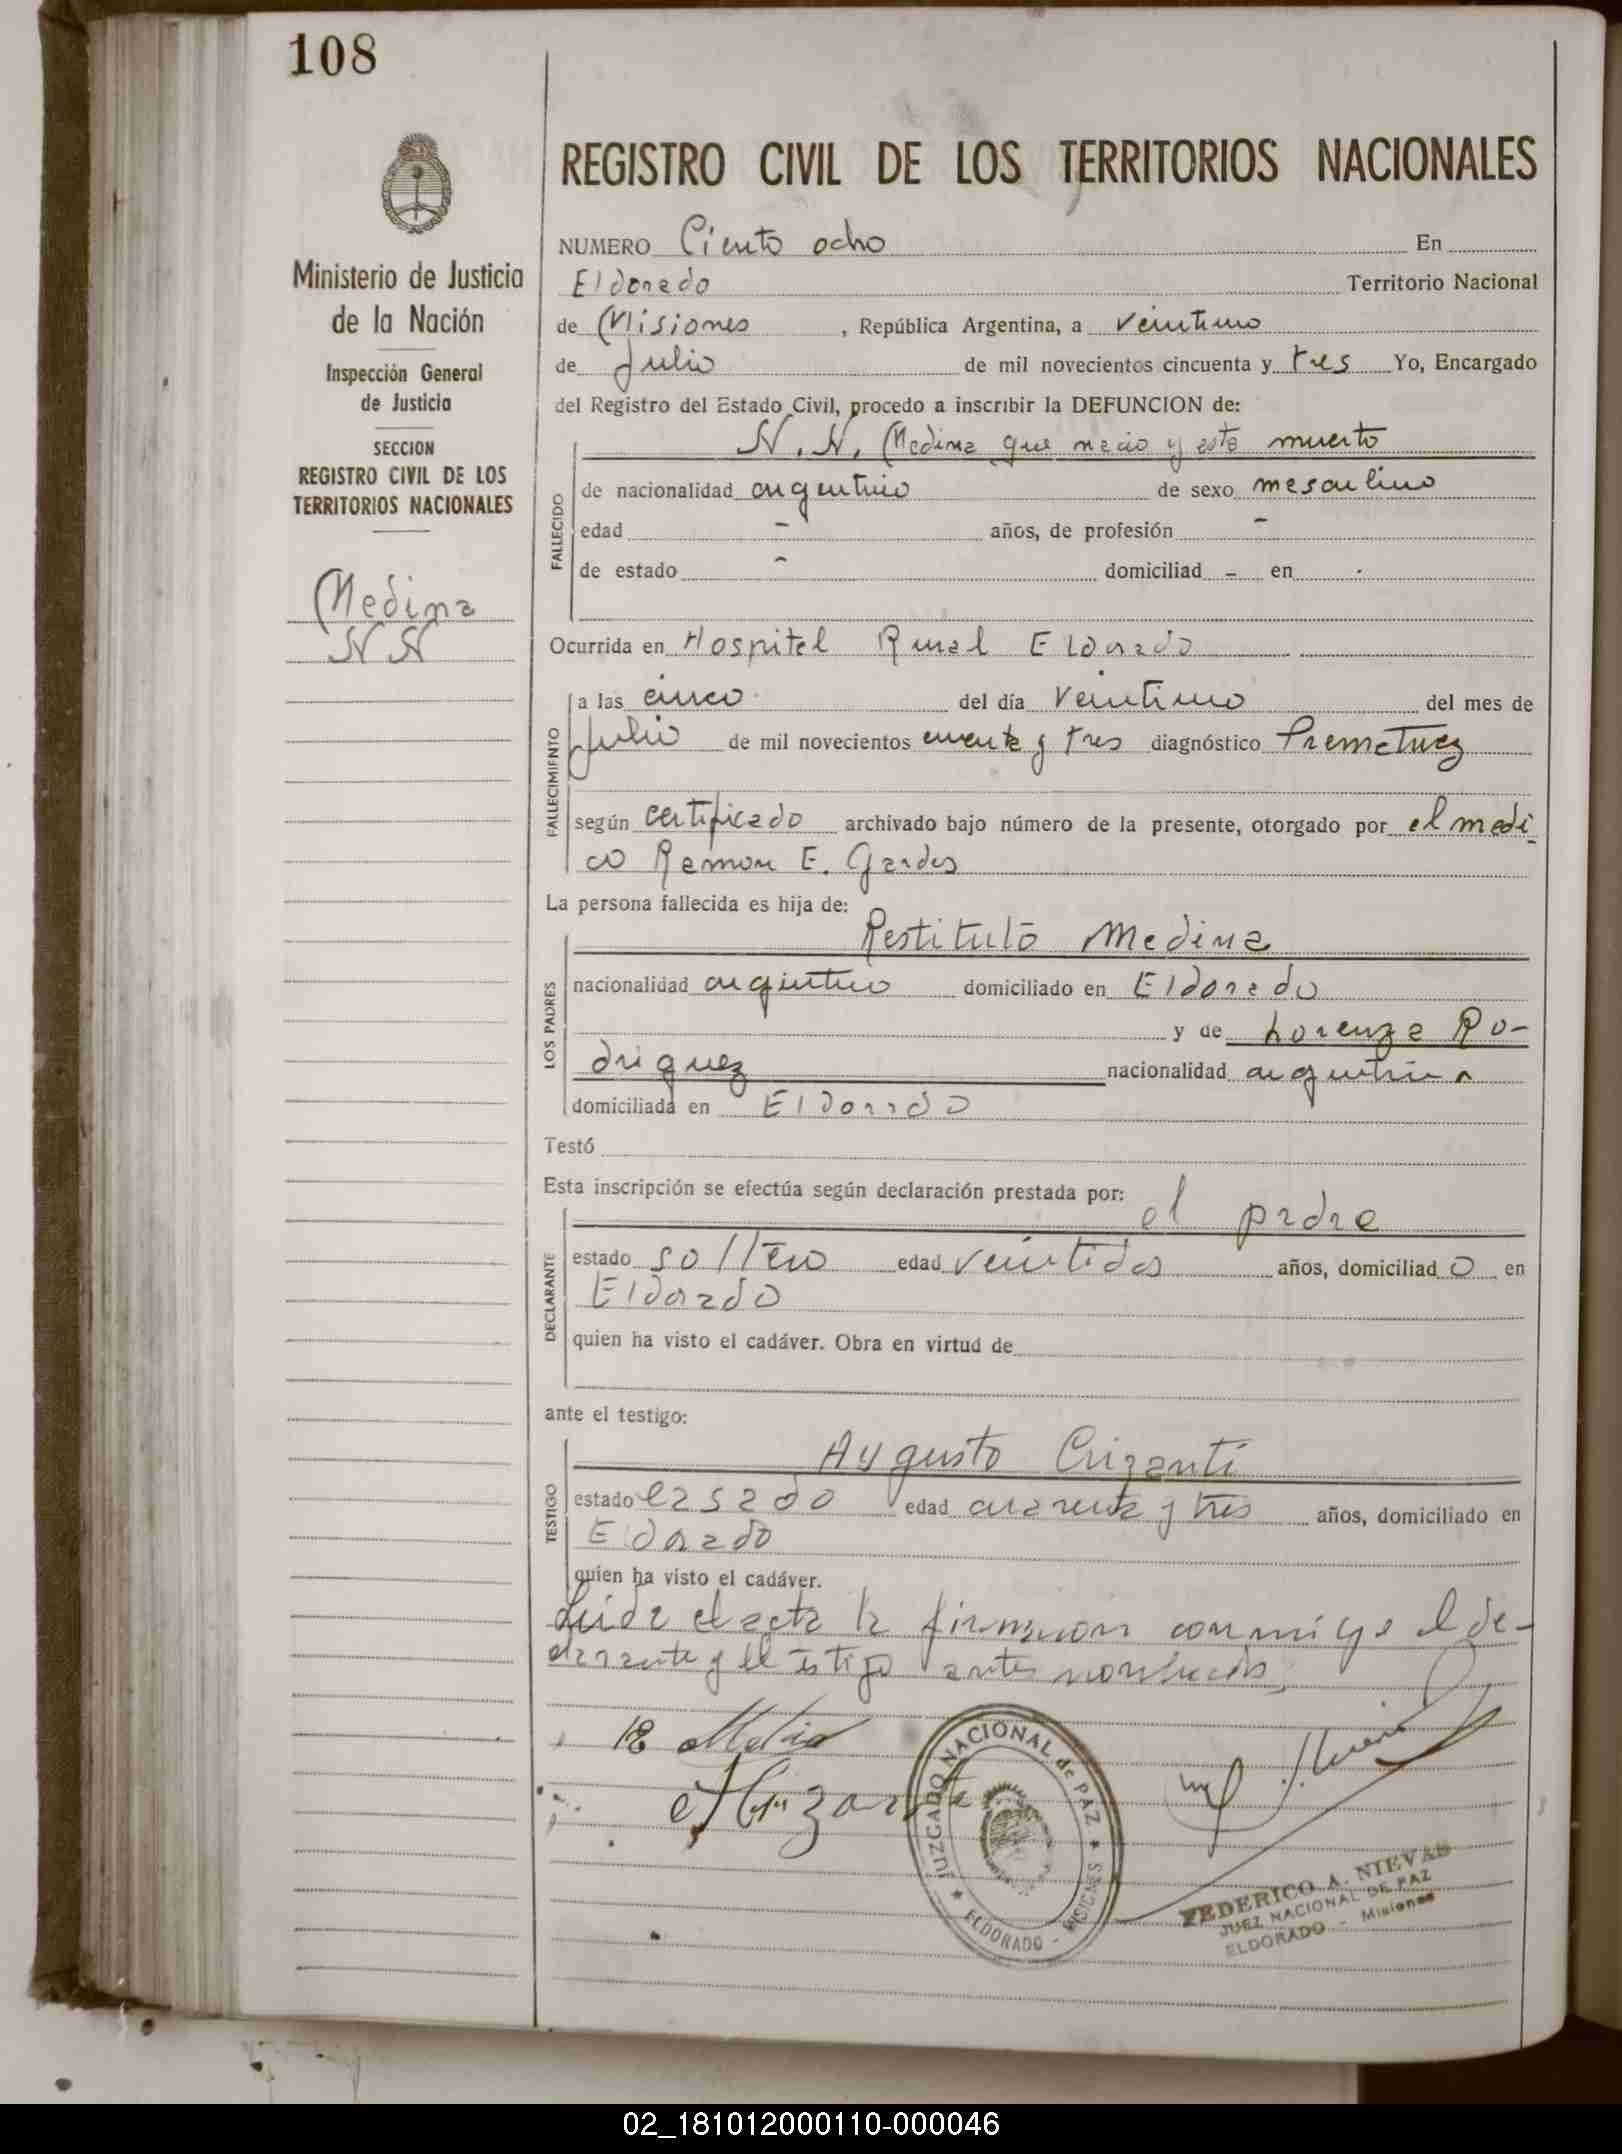 108
Ministerio de Justicia
de la Nación
Inspección General
de Justicia
SECCION
REGISTRO CIVIL DE LOS
TERRITORIOS NACIONALES
Medina
N N
REGISTRO CIVIL DE LOS TERRITORIOS NACIONALES
NUMERO Ciento ocho En
Eldorado Territorio Nacional
de Misiones, República Argentina, a veintiuno
de Julio de mil novecientos cincuenta y tres Yo, Encargado
del Registro del Estado Civil, procedo a inscribir la DEFUNCION de:
N. N. Medina que nacio y esta muerto
FALLECIDO
de nacionalidad argentino de sexo masculino
edad - años, de profesión -
de estado - domiciliad - en -
Ocurrida en Hospital Rural Eldorado
FALLECIMIENTO
a las cinco del día veintiuno del mes de
Julio de mil novecientos cincuenta y tres diagnóstico Prematurez
según certificado archivado bajo número de la presente, otorgado por el medi-
co Ramon E. Gardes
La persona fallecida es hija de:
LOS PADRES
Restituto Medina
nacionalidad argentino domiciliado en Eldorado
y de Lorenza Ro-
driguez nacionalidad argentina
domiciliada en Eldorado
Testó
Esta inscripción se efectúa según declaración prestada por:
el padre
DECLARANTE
estado soltero edad veintidos años, domiciliad o en
Eldorado
quien ha visto el cadáver. Obra en virtud de
ante el testigo:
Augusto Crizanti
TESTIGO
estado casado edad cuarenta y tres años, domiciliado en
Eldorado
quien ha visto el cadáver.
Leida el acta la firmaron conmigo el de-
clarante y el testigo antes nombrados
JUZGADO NACIONAL de PAZ ★ ELDORADO - MISIONES ★
FEDERICO A. NIEVAS
JUEZ NACIONAL DE PAZ
ELDORADO - Misiones
02_181012000110-000046